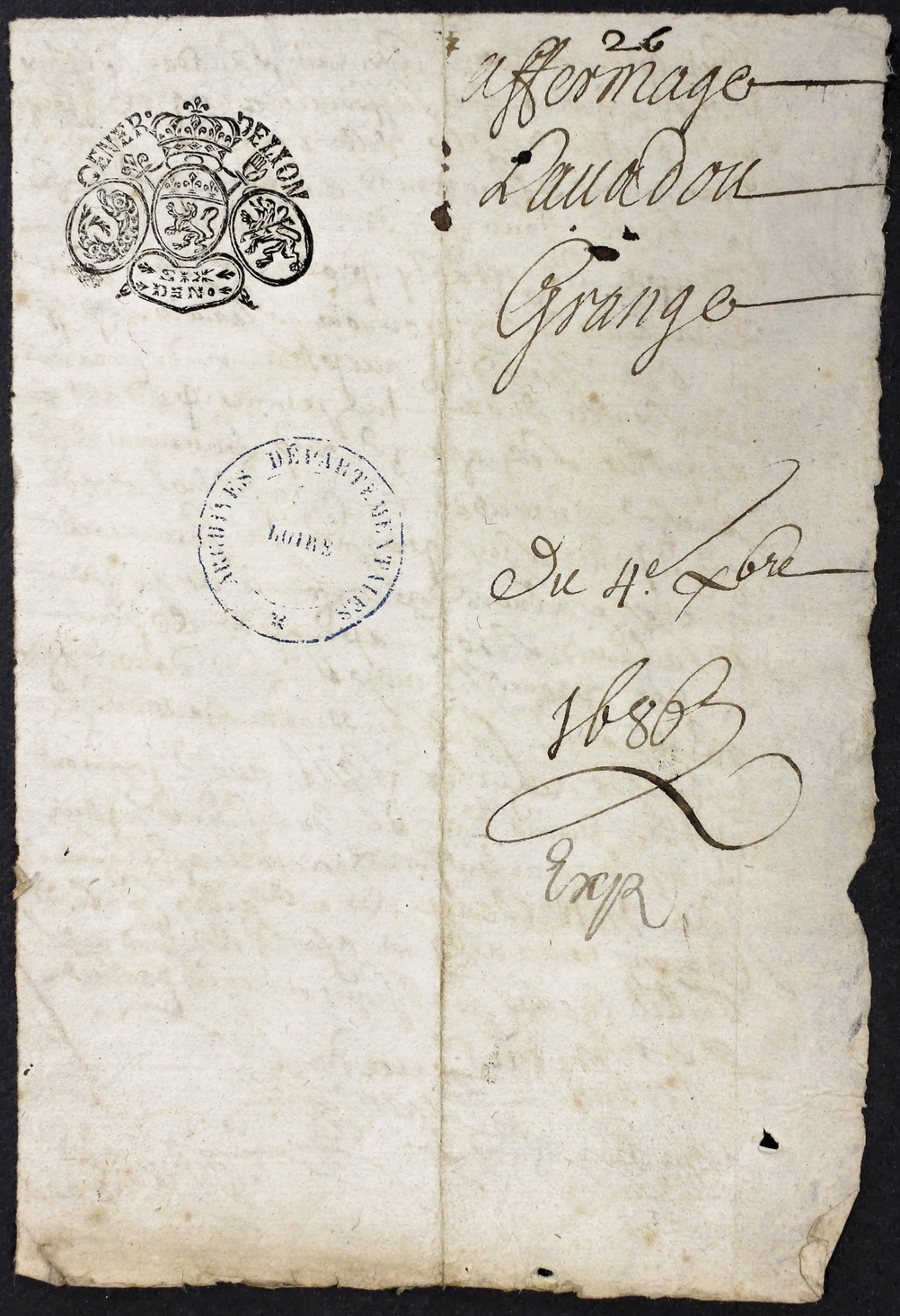 26
affermage
Lauadou
Grange
GENER. DE LYON
SIX
DEN.
ARCHIVES DÉPARTEMENTALES
LOIRE
Du 4e. xbre
1686
Exp